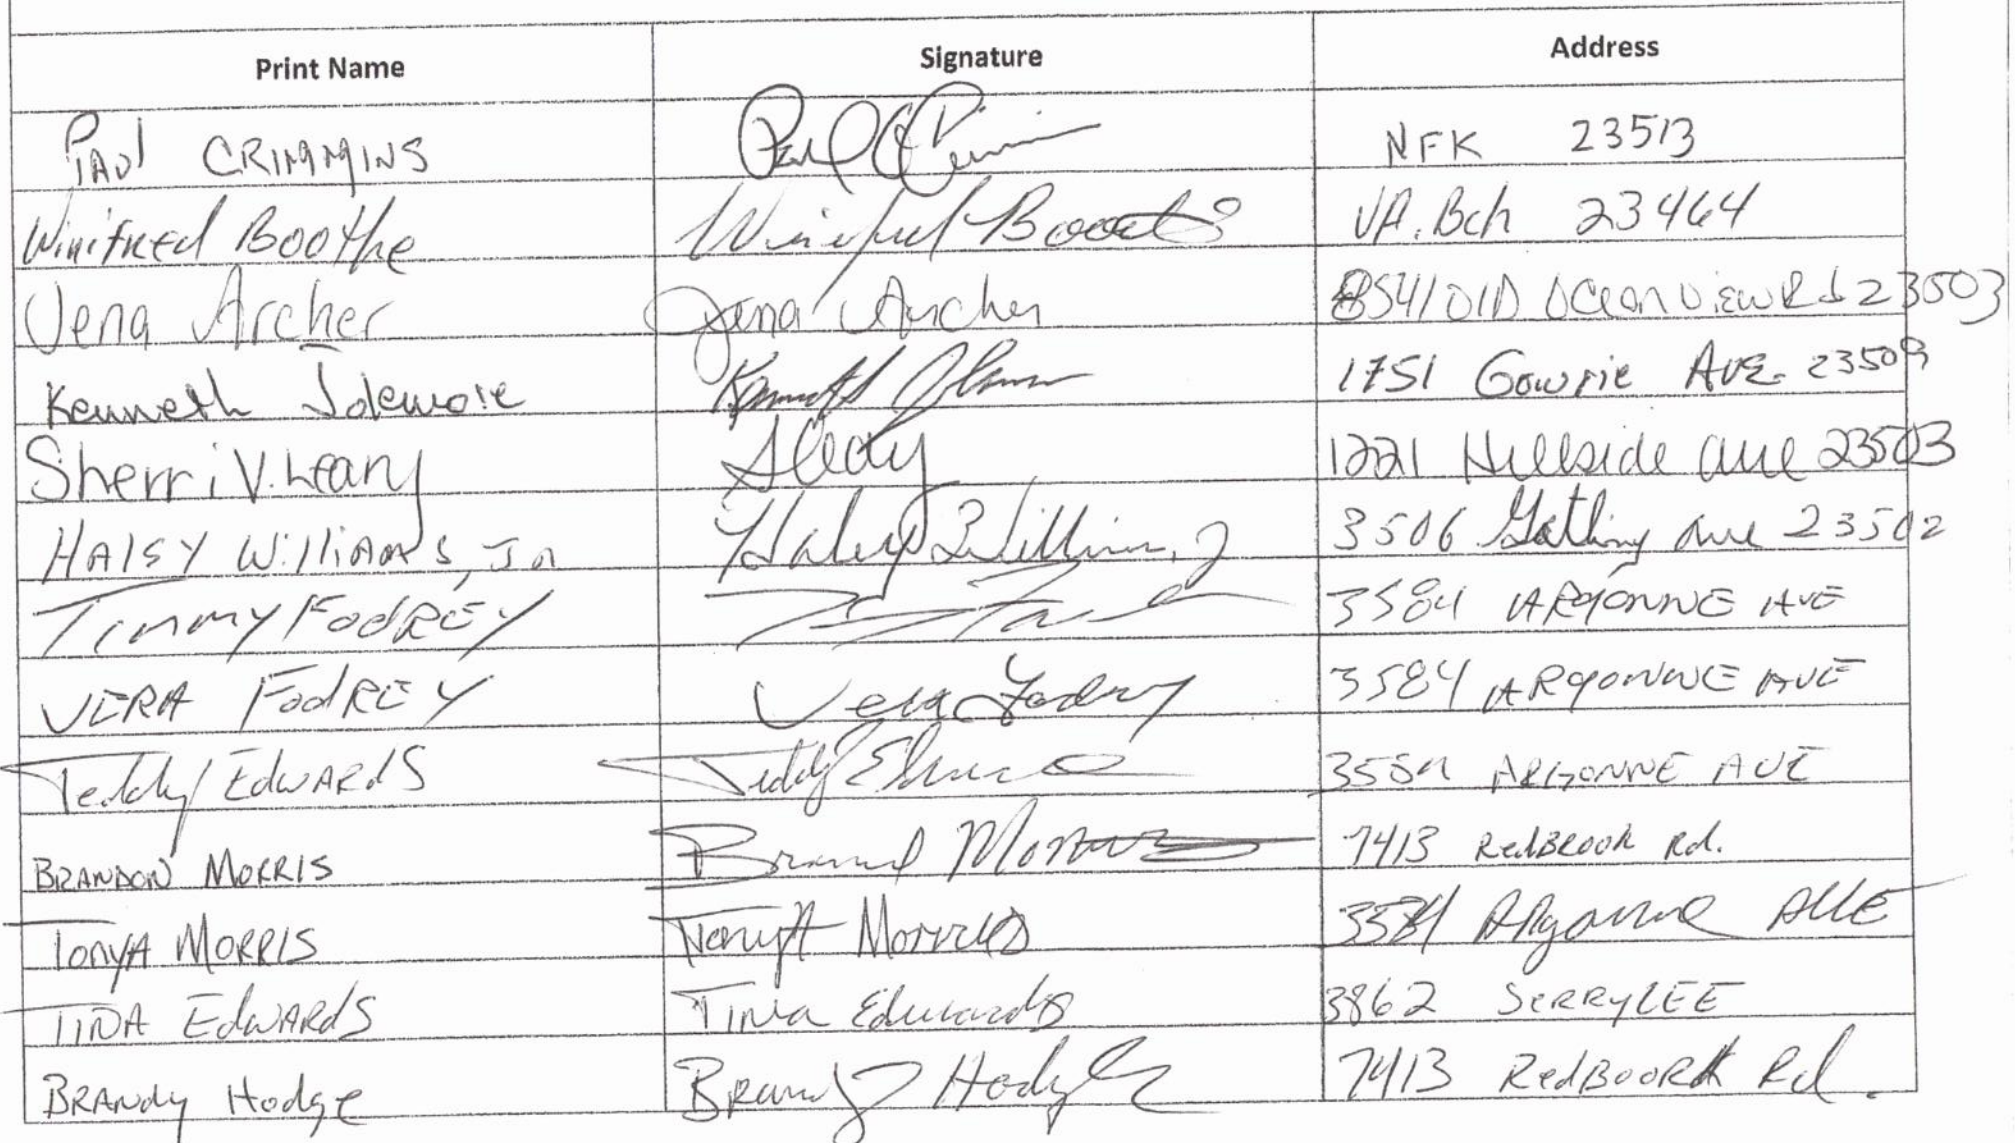 Print Name Signature Address
PAUl CRIMMINS Paul NFK 23513
Winifred Boothe Winifred VA. Bch 23464
Jena Archer Jena Archer 8541 OlD OCean View Rd 23503
Kenneth Kenneth 1751 Gowrie AVE. 23509
Sherri V. Leary SLeary 1221 Hillside ave 23503
HAlSY WilliAMS, JR Halsy Williams, J 3506 Gatling Ave 23502
Timmy FodREY 3584 ARgONNE AVE
VERA FodREY Vera Fodrey 3584 ARgONNE AVE
Teddy EdwARdS Teddy ARGONNE AVE
BRANDON MORRIS 7413 RedBROOK Rd.
TONYA MORRIS Tonya Morris 3584 ARgonne AVE
TINA EdwARdS TINa Edwards 3862 SeRRyLEE
BRANDy Hodge Brandy Hodge 7413 RedBOORK Rd.